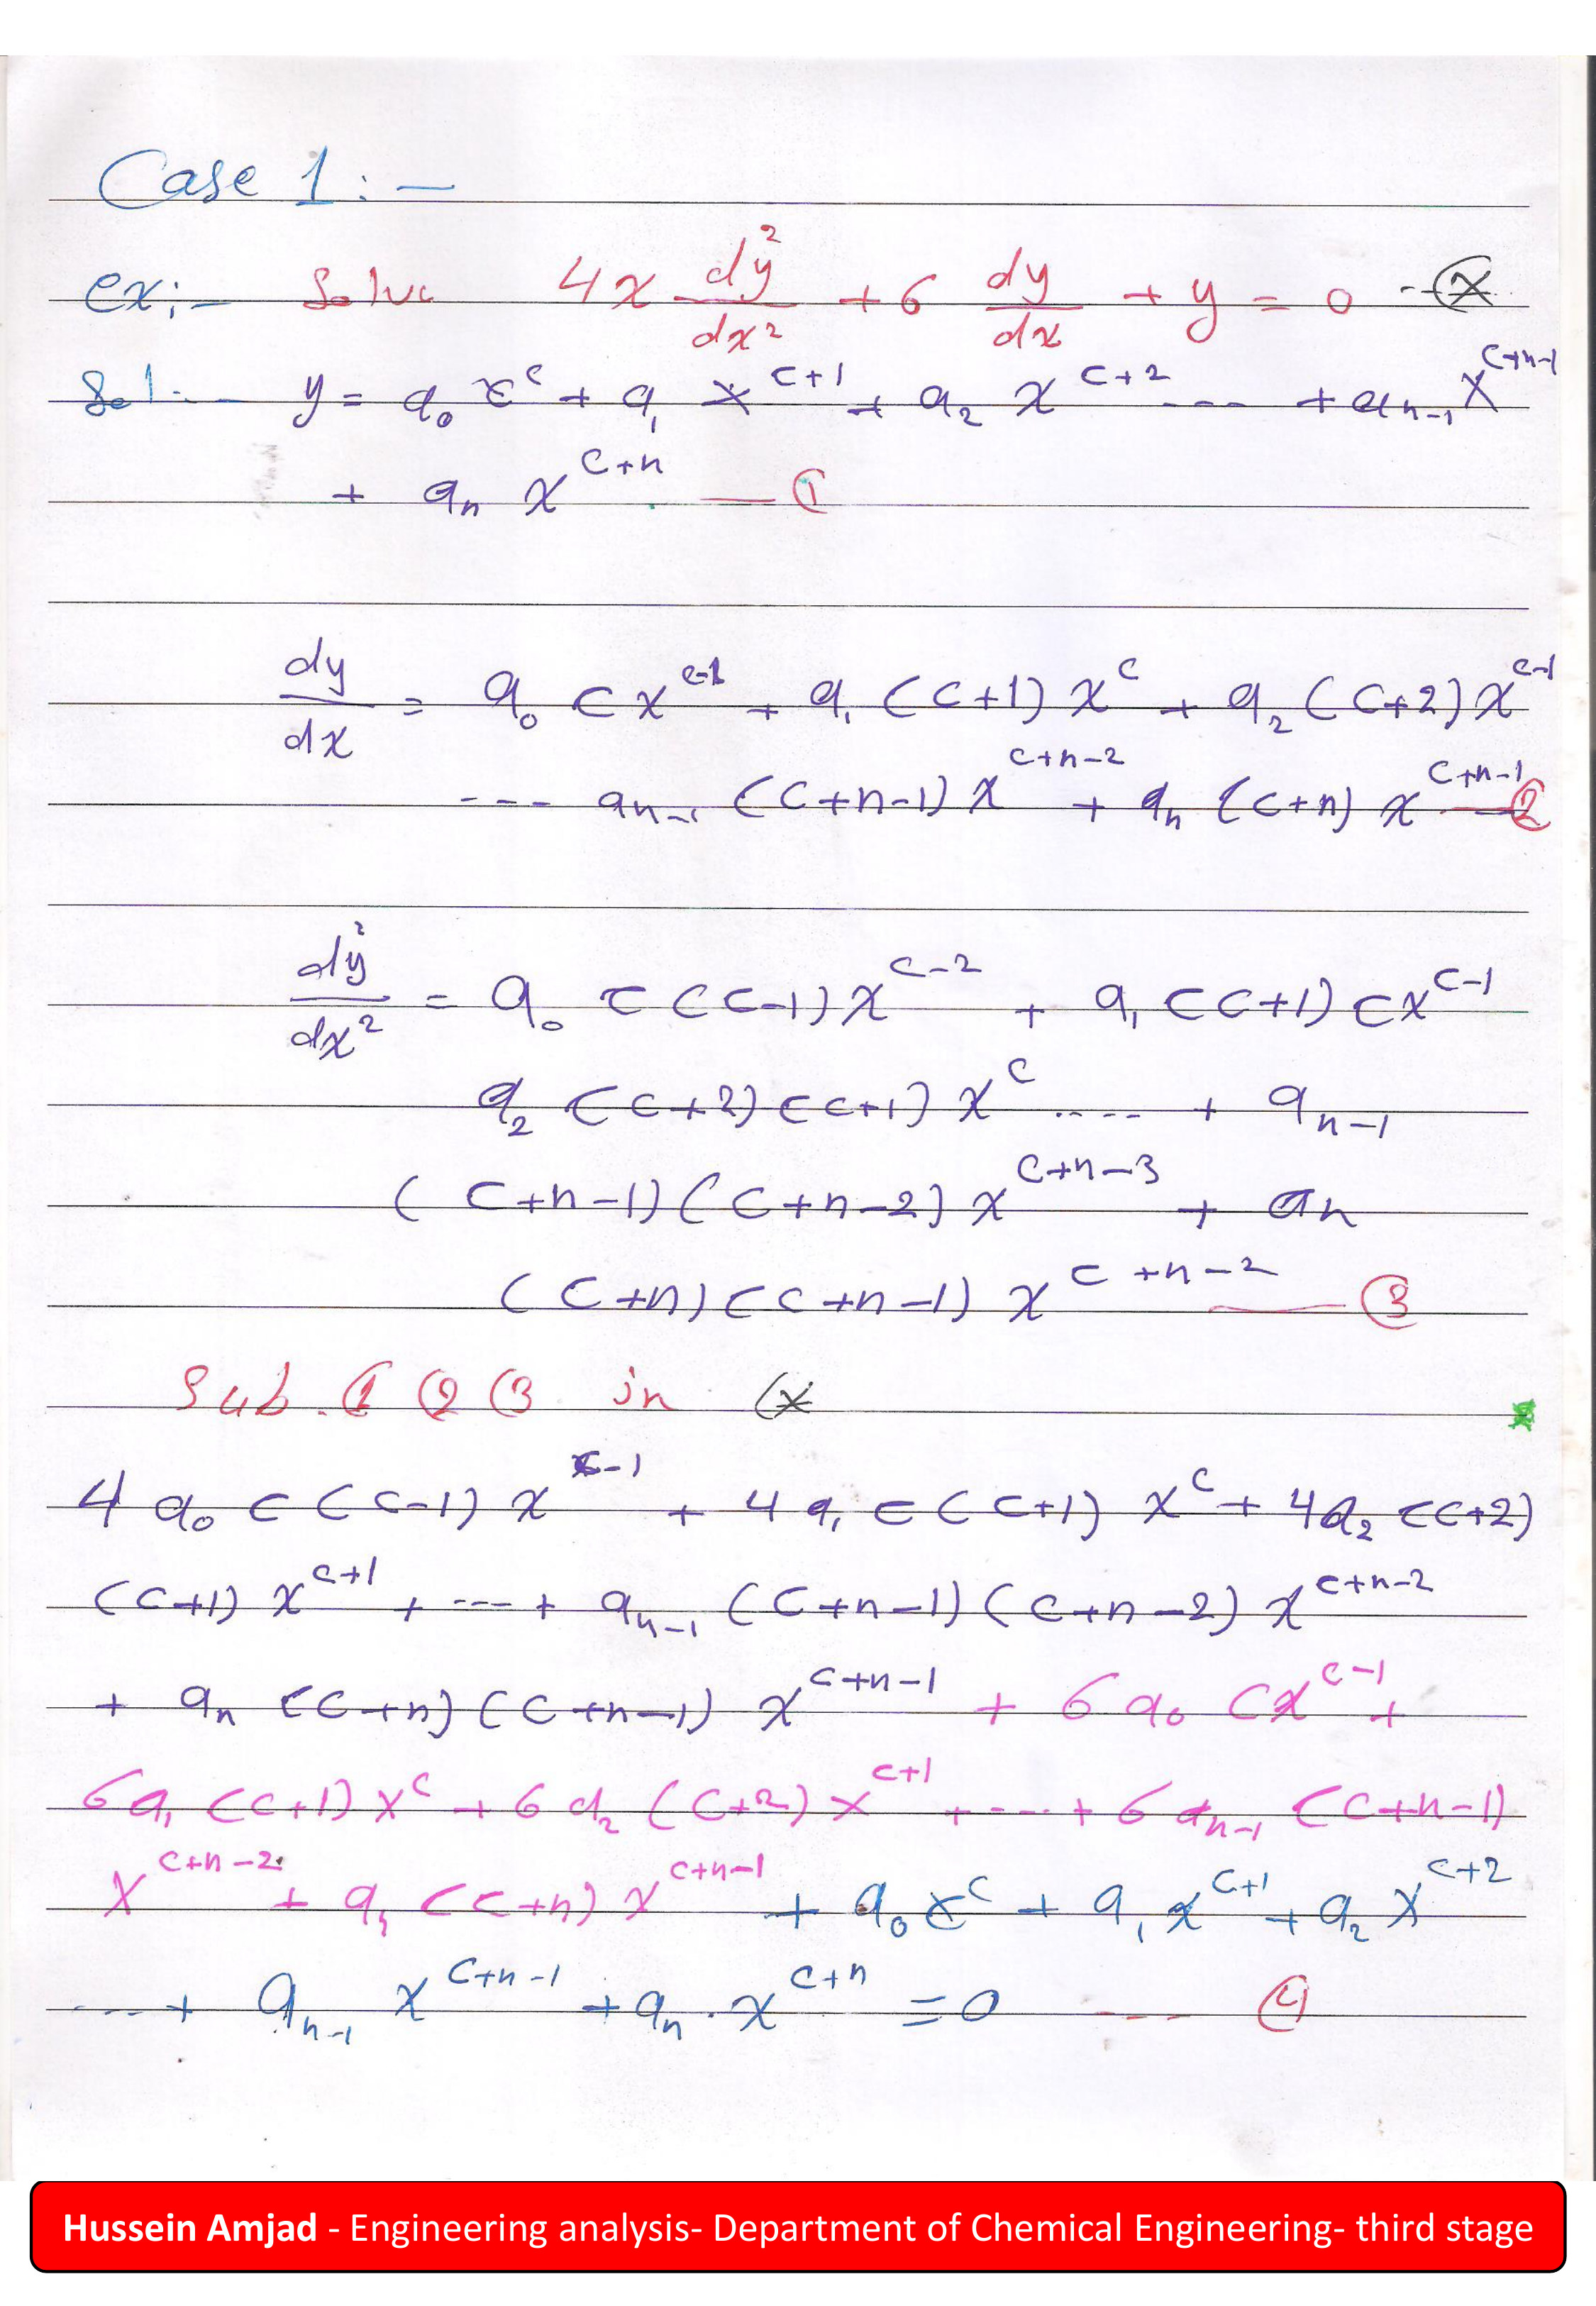 Case 1:-
ex:- Solve 4x dy²/dx² + 6 dy/dx + y = 0 --(*)
Sol:- y = a₀ x^c + a₁ x^(c+1) + a₂ x^(c+2) ---- + aₙ₋₁ x^(c+n-1)
+ aₙ x^(c+n) — ①
dy/dx = a₀ c x^(c-1) + a₁ (c+1) x^c + a₂ (c+2) x^(c-1)
--- aₙ₋₁ (c+n-1) x^(c+n-2) + aₙ (c+n) x^(c+n-1) — ②
dy²/dx² = a₀ c (c-1) x^(c-2) + a₁ (c+1) c x^(c-1)
a₂ (c+2) (c+1) x^c ---- + aₙ₋₁
(c+n-1) (c+n-2) x^(c+n-3) + aₙ
(c+n) (c+n-1) x^(c+n-2) — ③
Sub. ① ② ③ in (*)
4 a₀ c (c-1) x^(c-1) + 4 a₁ c (c+1) x^c + 4 a₂ (c+2)
(c+1) x^(c+1) + --- + aₙ₋₁ (c+n-1) (c+n-2) x^(c+n-2)
+ aₙ (c+n) (c+n-1) x^(c+n-1) + 6 a₀ c x^(c-1) +
6 a₁ (c+1) x^c + 6 a₂ (c+2) x^(c+1) + ---- + 6 aₙ₋₁ (c+n-1)
x^(c+n-2) + aₙ (c+n) x^(c+n-1) + a₀ x^c + a₁ x^(c+1) + a₂ x^(c+2)
--- + aₙ₋₁ x^(c+n-1) + aₙ . x^(c+n) = 0 -- ④
Hussein Amjad - Engineering analysis- Department of Chemical Engineering- third stage